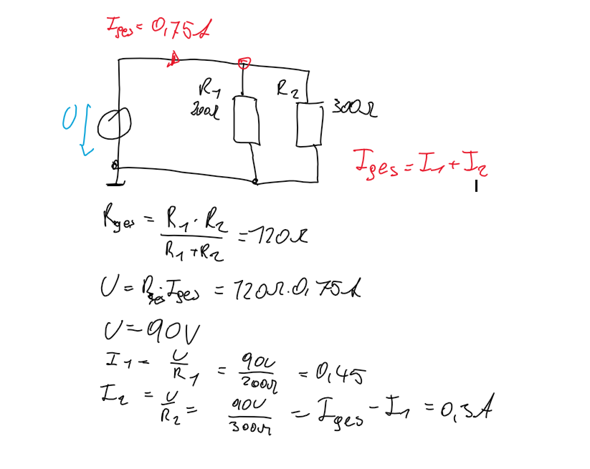 Iges = 0,75A
R1
R2
200Ω
300Ω
U
Iges = I1 + I2
Rges = R1 · R2 / R1 + R2 = 120Ω
U = Rges · Iges = 120Ω · 0,75A
U = 90V
I1 = U / R1 = 90V / 200Ω = 0,45
I2 = U / R2 = 90V / 300Ω = Iges - I1 = 0,3A